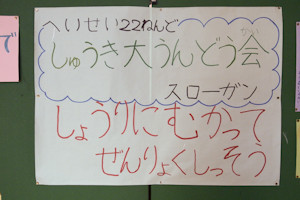 へいせい22ねんど
しゅうき大うんどう会
スローガン
しょうりにむかって
ぜんりょくしっそう
で